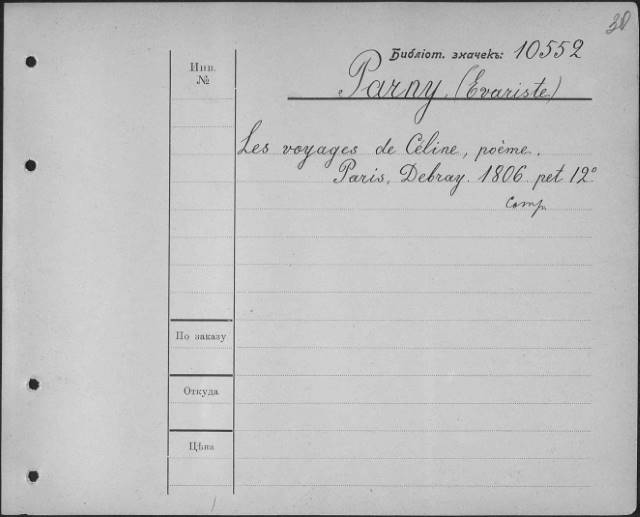 30
Библіот. значекъ: 10552
Инв.
№
Parny (Evariste)
Les voyages de Céline, poème.
Paris, Debray. 1806. pet 12°
Comp.
По заказу
Откуда
Цѣна